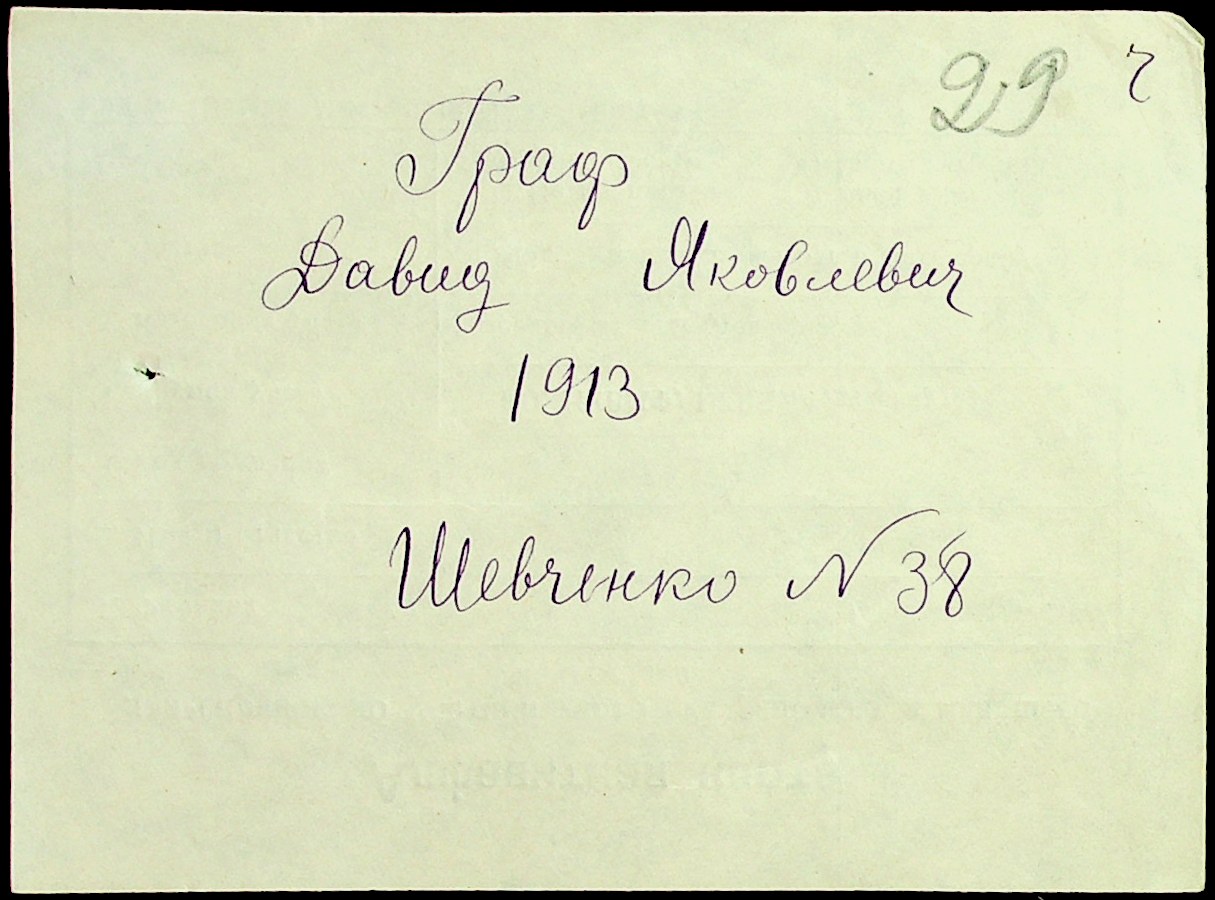 29 ч
Граф
Давид Яковлевич
1913
Шевченко N 38